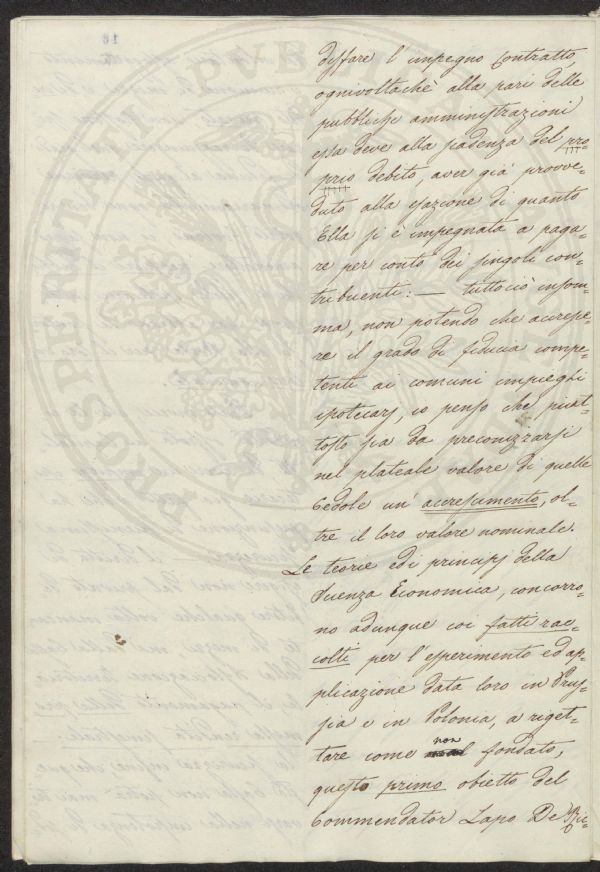 disfare l'impegno contratto,
ognivoltachè alla pari delle
pubbliche amministrazioni
essa deve alla scadenza del pro-
prio debito, aver già provve-
duto alla esazione di quanto
Ella si è impegnata a paga-
re per conto dei singoli con-
tribuenti: — tuttociò insom-
ma, non potendo che accresce-
re il grado di fiducia compe-
tente ai comuni impieghi
ipotecarj, io penso che piut-
tosto sia da preconizzarsi
nel plateale valore di quelle
Cedole un' accrescimento, ol-
tre il loro valore nominale.
Le teorie ed i principj della
Scienza Economica, concorro-
no adunque coi fatti rac-
colti per l'esperimento ed ap-
plicazione data loro in Prus-
sia e in Polonia, a riget-
tare come non fondato,
questo primo obietto del
Commendator Lapo De Ric-